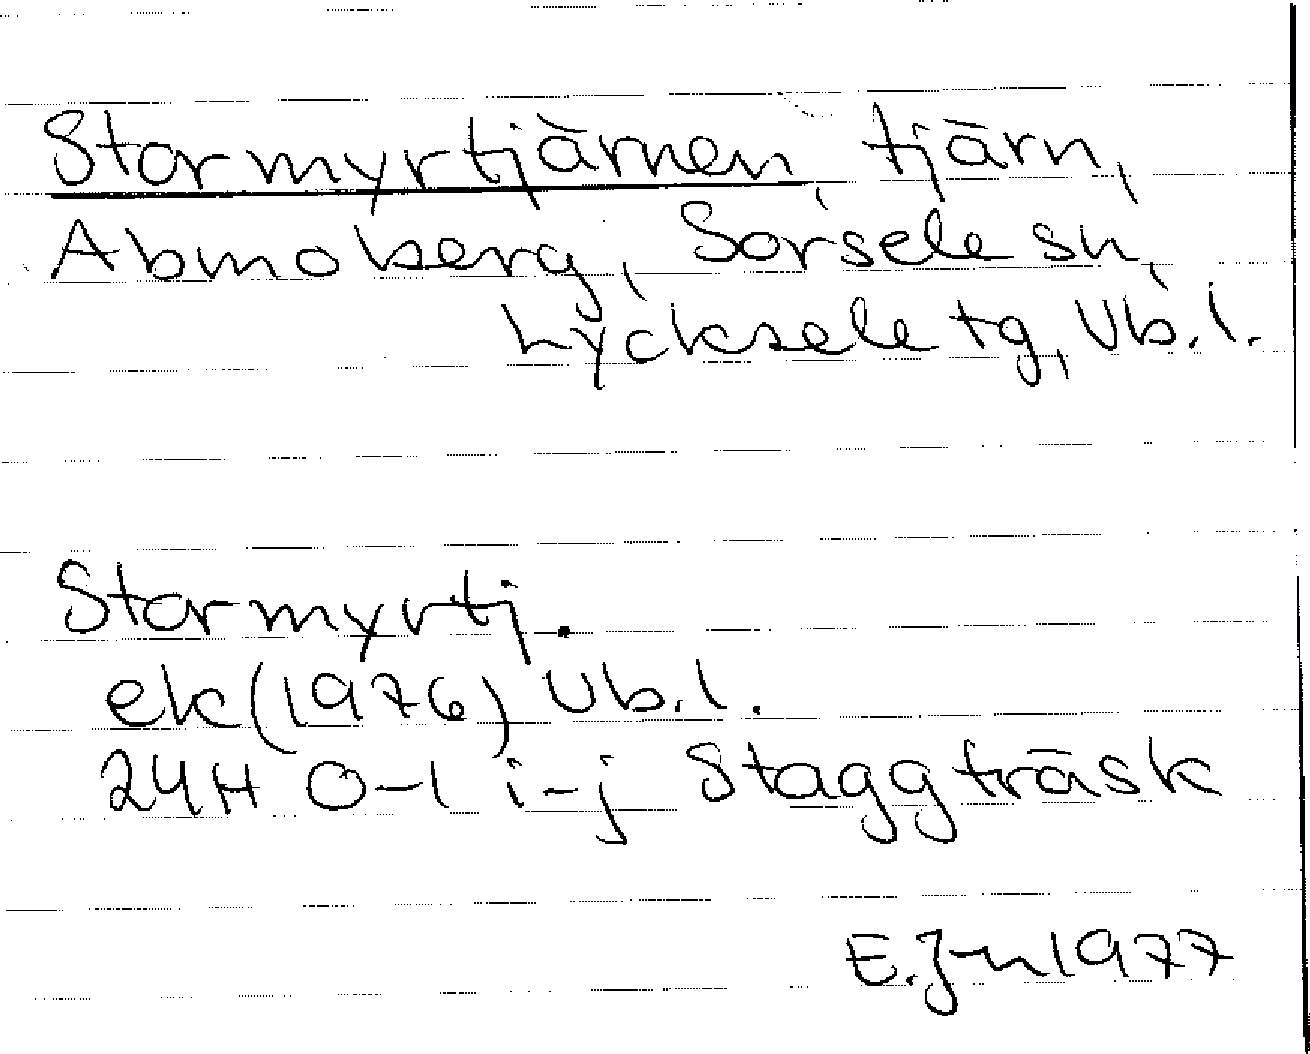 Stormyrtjärnen, tjärn,
Abmoberg, Sorsele sn,
Lycksele tg, Vb. l.
Stormyrtj.
ek (1976) Vb. l.
24H 0-1 i-j Staggträsk
E. Jn 1977